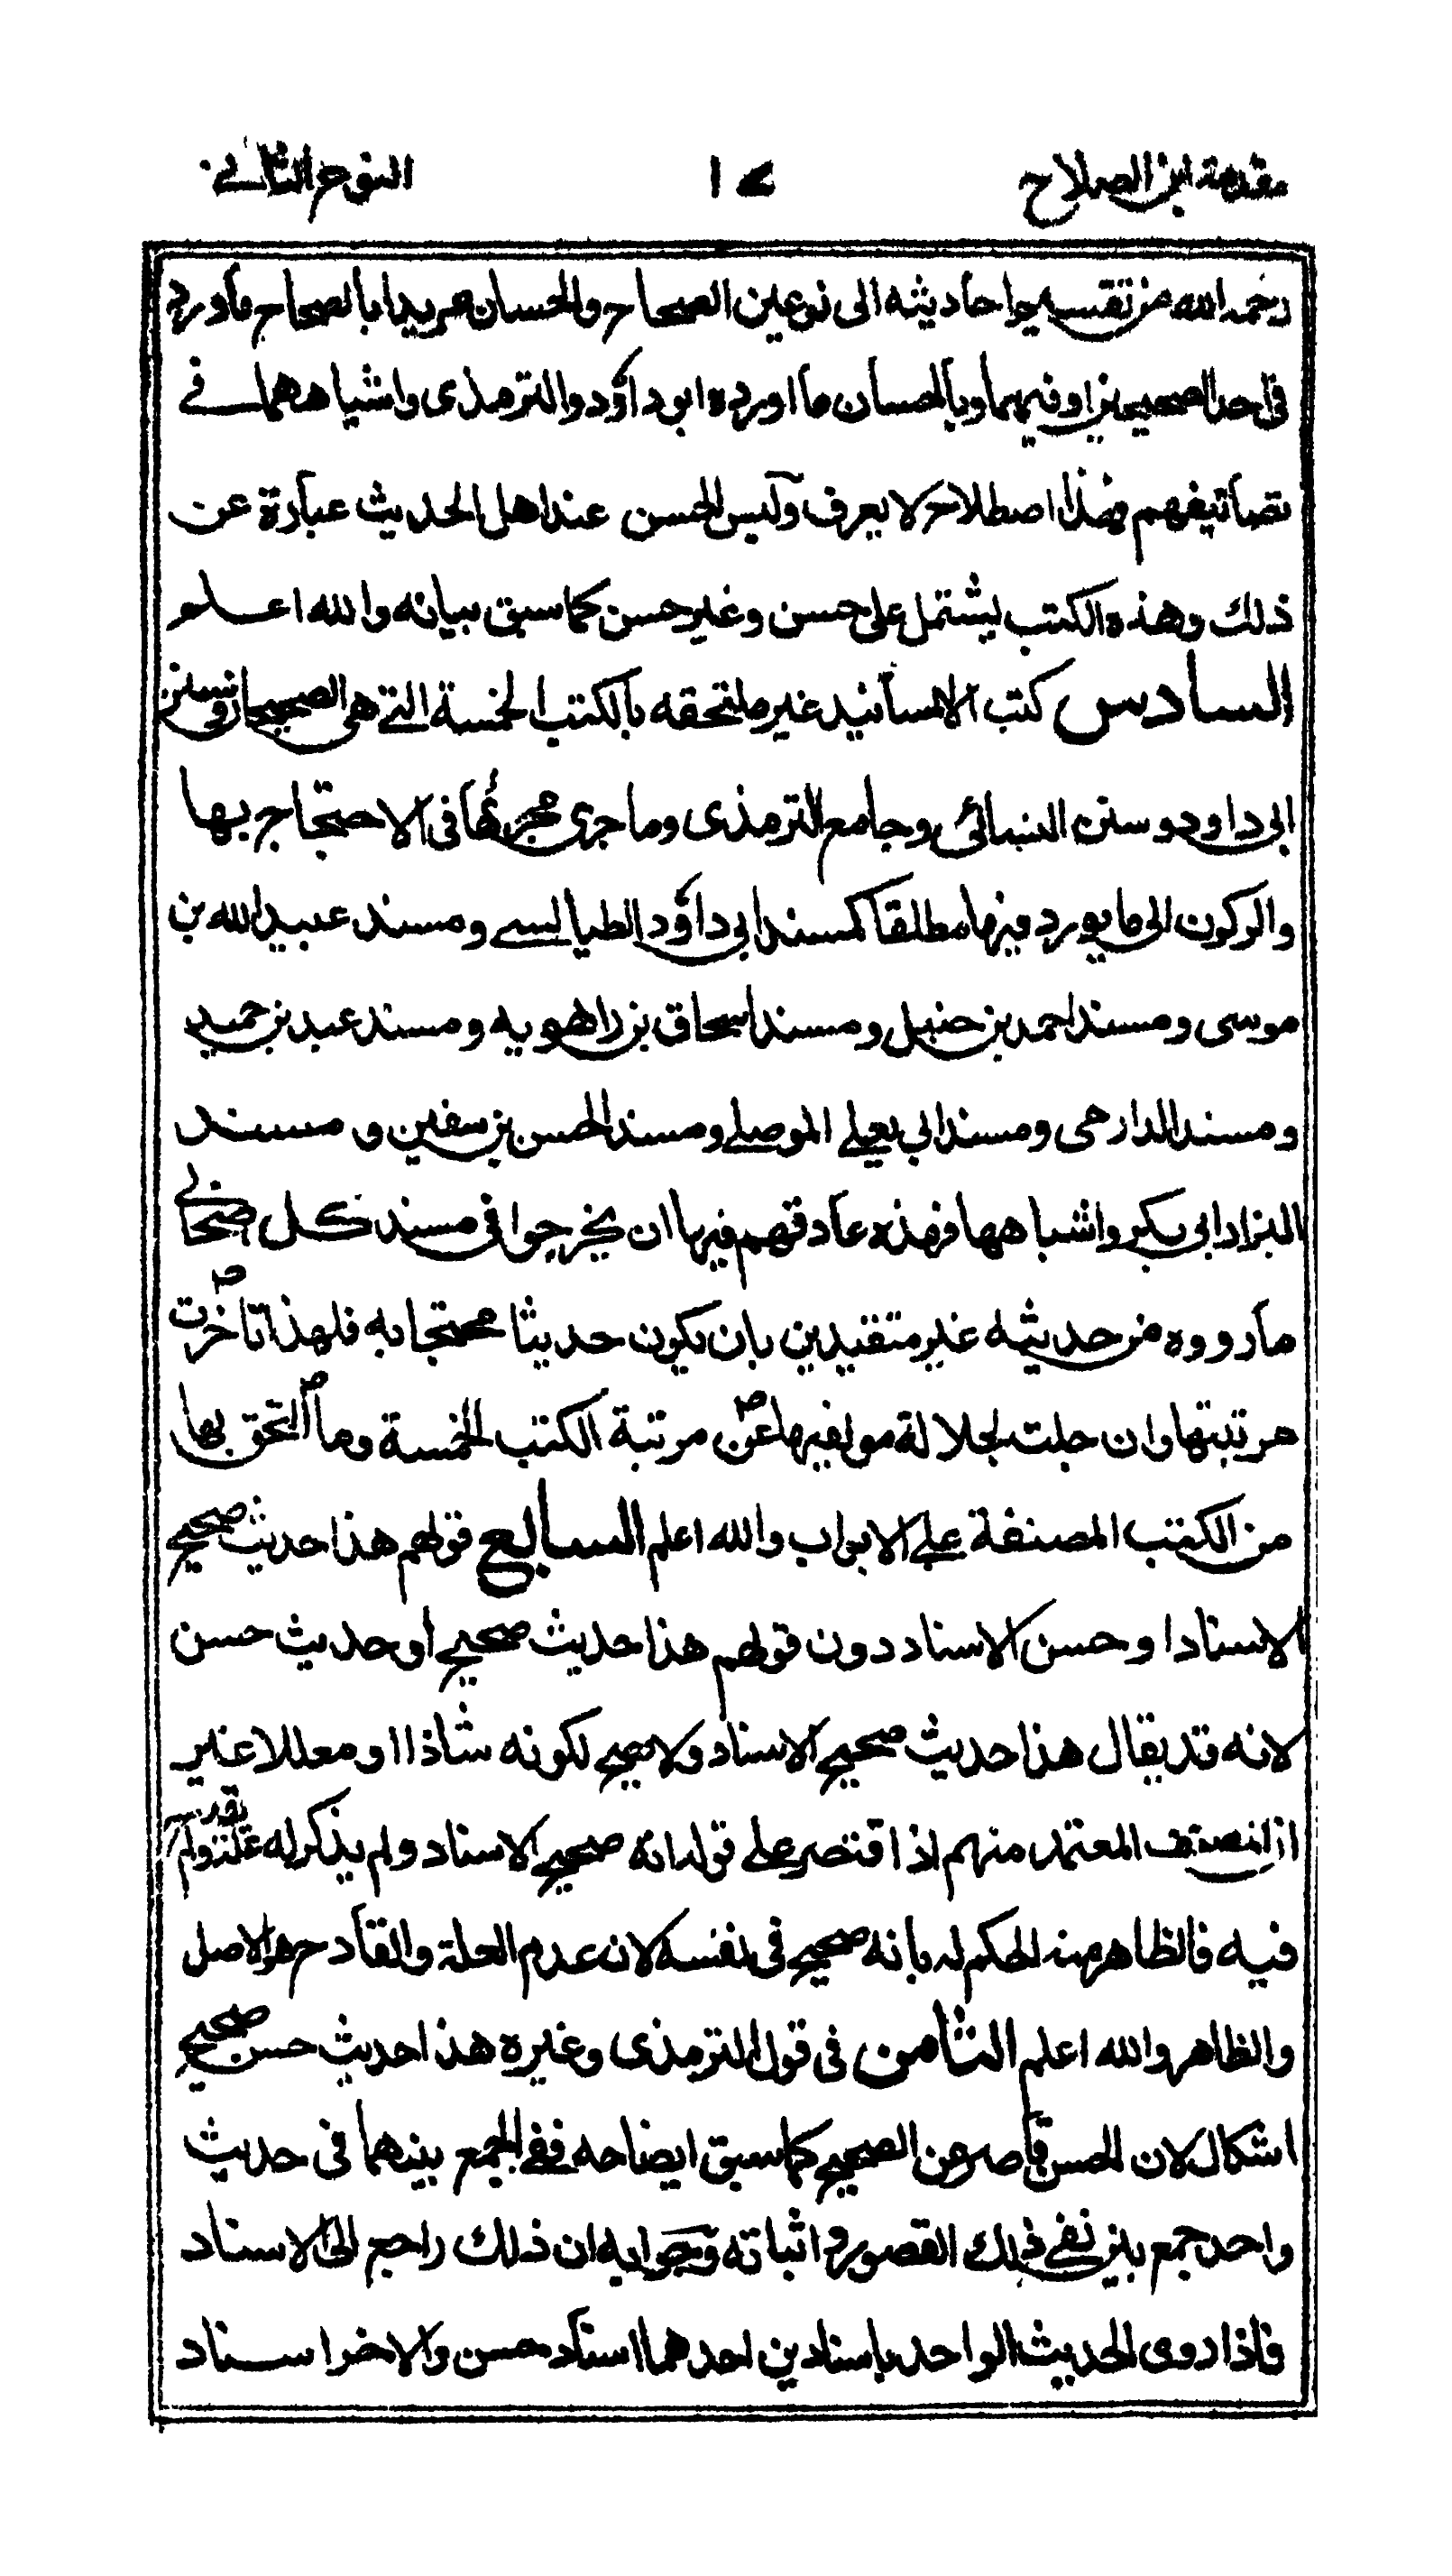 مقدمة ابن الصلاح
النوع الثاني
رحمه الله من تقسيم احاديثه الى نوعين الصحاح والحسان مريدا بالصحاح ما ورد
في احد الصحيحين او فيهما وبالحسان ما اورده ابو داؤد والترمذى واشباههما في
تصانيفهم فهذا اصطلاح لا يعرف وليس الحسن عند اهل الحديث عبارة عن
ذلك وهذه الكتب يشتمل على حسن وغير حسن كما سبق بيانه والله اعلم
السادس كتب الامسانيد غير ملتحقه بالكتب الخمسة التي هي الصحيحان وسنن
ابى داود و سنن النسائي وجامع الترمذى وما جرى مجرئها في الاحتجاج بها
والركون الى ما يورد فيها مطلقا كمسند ابى داؤد الطيالسے ومسند عبيد الله بن
موسى و مسند احمد بن حنبل و مسند اسحاق بن راهويه و مسند عبد بن حميد
و مسند الدارمى و مسند ابى يعلے الموصلے و مسند الحسن بن سفين و مسند
البزار ابى بكر واشباهها فهذه عادتهم فيها ان يخرجوا في مسند كل صحابي
ما رووه من حديثه غير متقيدين بان يكون حديثا محتجا به فلهذا تاخرت
مرتبتها وان جلت لجلالة مولفيها عن مرتبة الكتب الخمسة وما التحق بها
من الكتب المصنفة علے الابواب والله اعلم السابع قولهم هذا حديث صحيح
الاسناد او حسن الاسناد دون قولهم هذا حديث صحيح او حديث حسن
لانه قد يقال هذا حديث صحيح الاسناد ولا يصح لكونه شاذا او معللا غير
ان المصنف المعتمد منهم اذا اقتصر على قوله انه صحيح الاسناد ولم يذكر له علة ولم يقدح
فيه فالظاهر منه الحكم له بانه صحيح في نفسه لان عدم العلة والقادح هو الاصل
والظاهر والله اعلم الثامن في قول الترمذى وغيره هذا حديث حسن صحيح
اشكال لان الحسن قاصر عن الصحيح كما سبق ايضاحه ففي الجمع بينهما في حديث
واحد جمع بين نفي ذلك القصور و اثباته وجوابه ان ذلك راجع الى الاسناد
فاذا روى الحديث الواحد باسنادين احدهما اسناد حسن والاخر اسناد